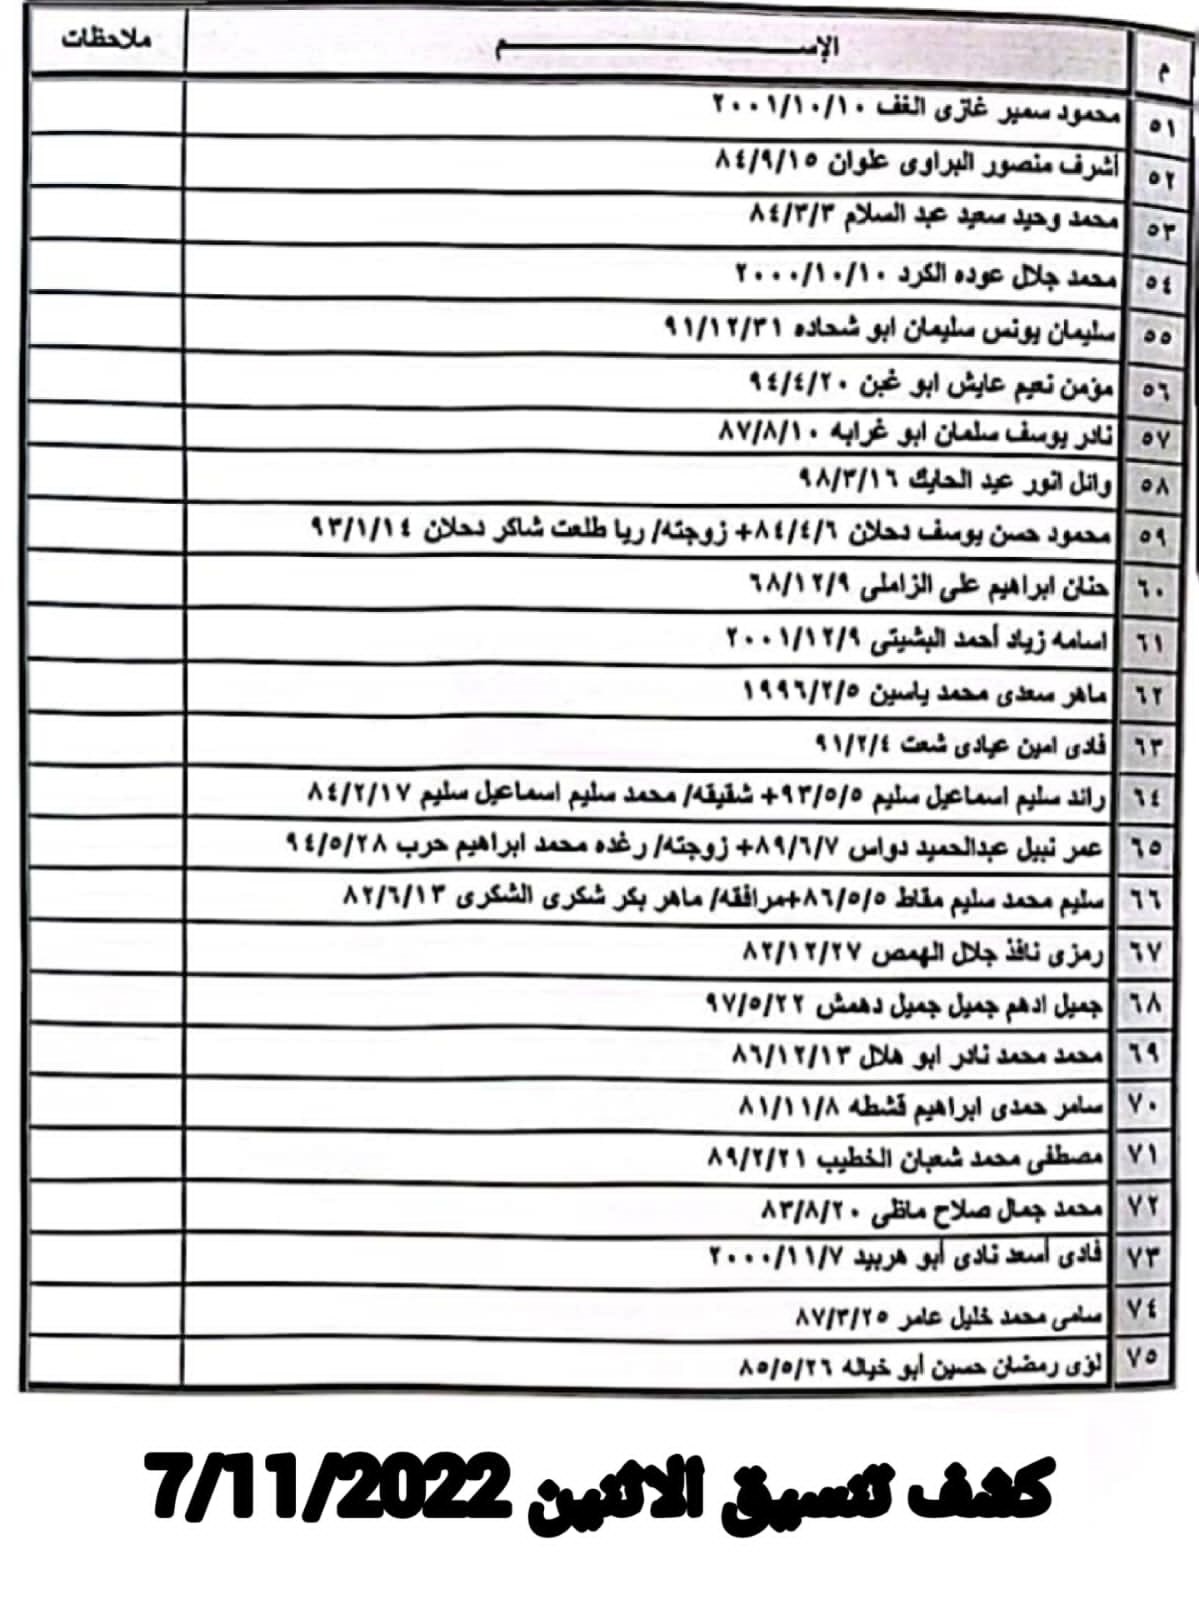 م الإســــــــم ملاحظات
٥١ محمود سمير غازى الغف ٢٠٠١/١٠/١٠
٥٢ أشرف منصور البراوى علوان ٨٤/٩/١٥
٥٣ محمد وحيد سعيد عبد السلام ٨٤/٣/٣
٥٤ محمد جلال عوده الكرد ٢٠٠٠/١٠/١٠
٥٥ سليمان يونس سليمان ابو شحاده ٩١/١٢/٣١
٥٦ مؤمن نعيم عايش ابو غبن ٩٤/٤/٢٠
٥٧ نادر يوسف سلمان ابو غرابه ٨٧/٨/١٠
٥٨ وائل انور عيد الحايك ٩٨/٣/١٦
٥٩ محمود حسن يوسف دحلان ٨٤/٤/٦+ زوجته/ ريا طلعت شاكر دحلان ٩٣/١/١٤
٦٠ حنان ابراهيم على الزاملى ٦٨/١٢/٩
٦١ اسامه زياد أحمد البشيتى ٢٠٠١/١٢/٩
٦٢ ماهر سعدى محمد ياسين ١٩٩٦/٢/٥
٦٣ فادى امين عيادى شعت ٩١/٢/٤
٦٤ رائد سليم اسماعيل سليم ٩٣/٥/٥+ شقيقه/ محمد سليم اسماعيل سليم ٨٤/٢/١٧
٦٥ عمر نبيل عبدالحميد دواس ٨٩/٦/٧+ زوجته/ رغده محمد ابراهيم حرب ٩٤/٥/٢٨
٦٦ سليم محمد سليم مقاط ٨٦/٥/٥+مرافقه/ ماهر بكر شكرى الشكرى ٨٢/٦/١٣
٦٧ رمزى نافذ جلال الهمص ٨٢/١٢/٢٧
٦٨ جميل ادهم جميل جميل دهمش ٩٧/٥/٢٢
٦٩ محمد محمد نادر ابو هلال ٨٦/١٢/١٣
٧٠ سامر حمدى ابراهيم قشطه ٨١/١١/٨
٧١ مصطفى محمد شعبان الخطيب ٨٩/٢/٢١
٧٢ محمد جمال صلاح ماظى ٨٣/٨/٢٠
٧٣ فادى أسعد نادى أبو هربيد ٢٠٠٠/١١/٧
٧٤ سامى محمد خليل عامر ٨٧/٣/٢٥
٧٥ لؤى رمضان حسين أبو خياله ٨٥/٥/٢٦
كشف تنسيق الاثنين 7/11/2022